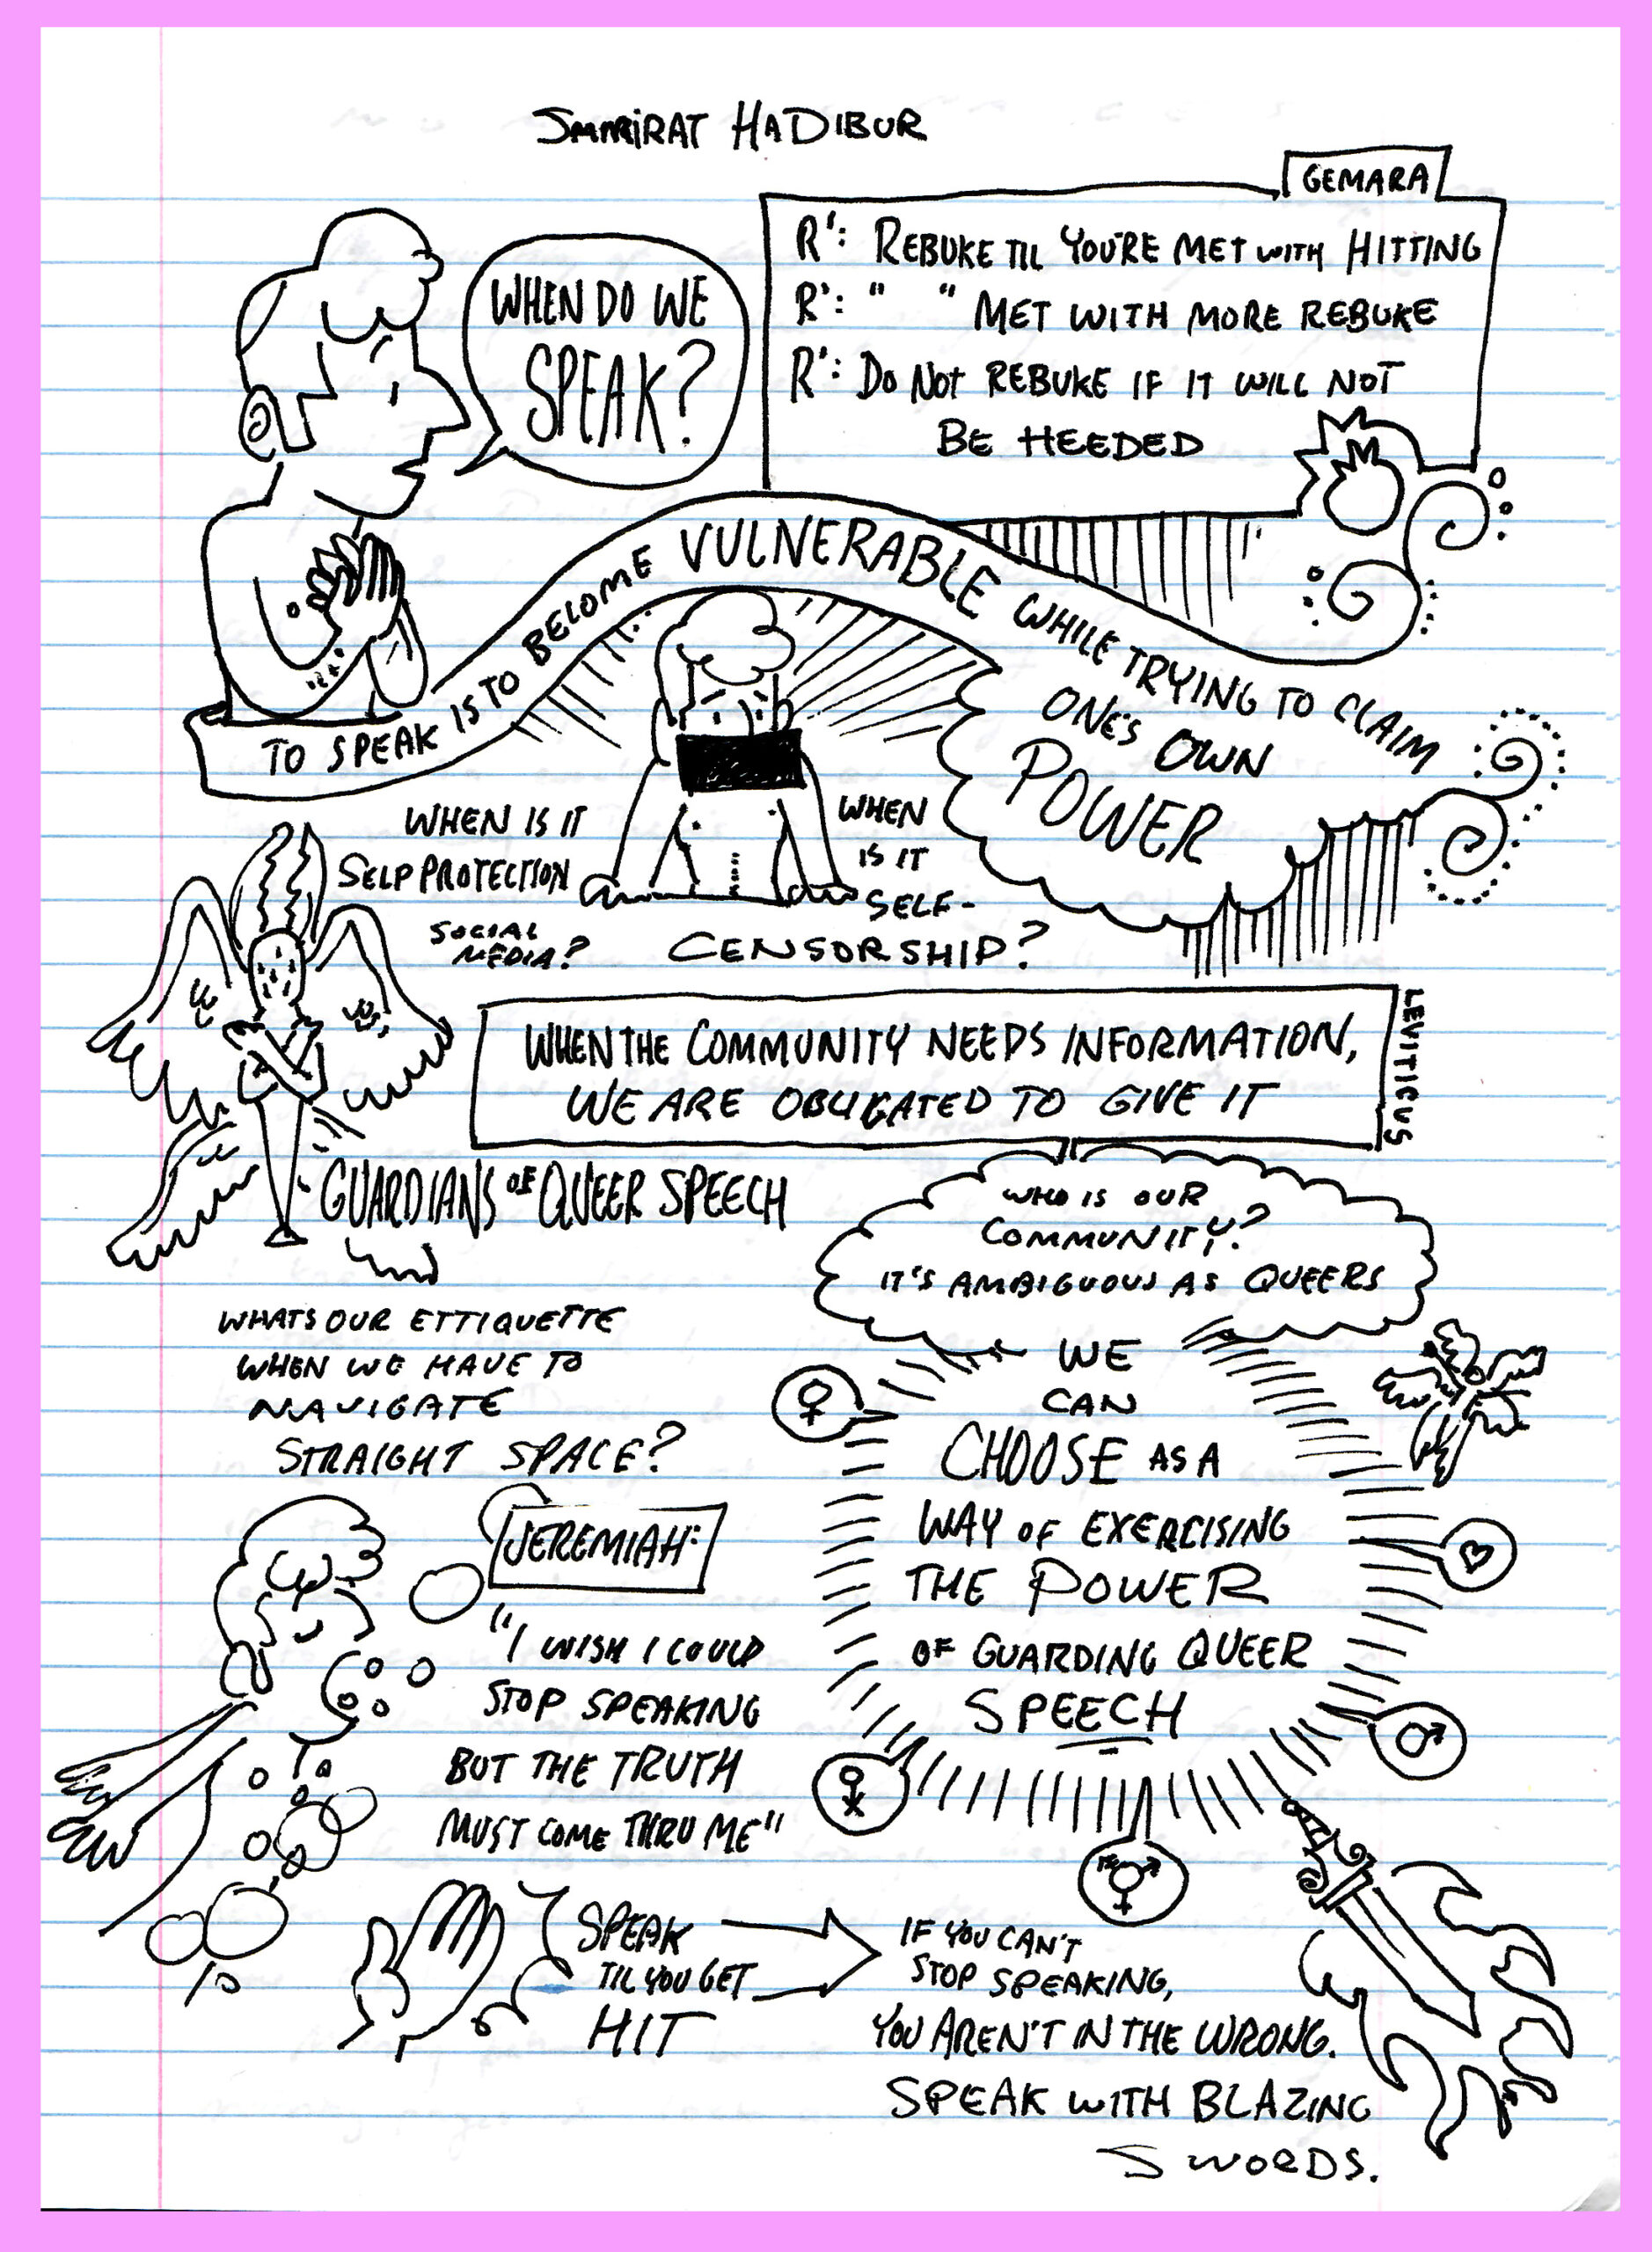 SHMIRAT HADIBUR
GEMARA
R': REBUKE TIL YOU'RE MET WITH HITTING
R': " " MET WITH MORE REBUKE
R': DO NOT REBUKE IF IT WILL NOT
BE HEEDED
WHEN DO WE
SPEAK?
TO SPEAK IS TO BECOME VULNERABLE WHILE TRYING TO CLAIM
ONE'S OWN
POWER
WHEN IS IT
SELF PROTECTION
SOCIAL
MEDIA?
WHEN
IS IT
SELF-
CENSORSHIP?
LEVITICUS
WHEN THE COMMUNITY NEEDS INFORMATION,
WE ARE OBLIGATED TO GIVE IT
GUARDIANS OF QUEER SPEECH
WHO IS OUR
COMMUNITY?
IT'S AMBIGUOUS AS QUEERS
WHATS OUR ETTIQUETTE
WHEN WE HAVE TO
NAVIGATE
STRAIGHT SPACE?
WE
CAN
CHOOSE AS A
WAY OF EXERCISING
THE POWER
OF GUARDING QUEER
SPEECH
JEREMIAH:
"I WISH I COULD
STOP SPEAKING
BUT THE TRUTH
MUST COME THRU ME"
SPEAK
TIL YOU GET
HIT
IF YOU CAN'T
STOP SPEAKING,
YOU AREN'T IN THE WRONG.
SPEAK WITH BLAZING
SWORDS.